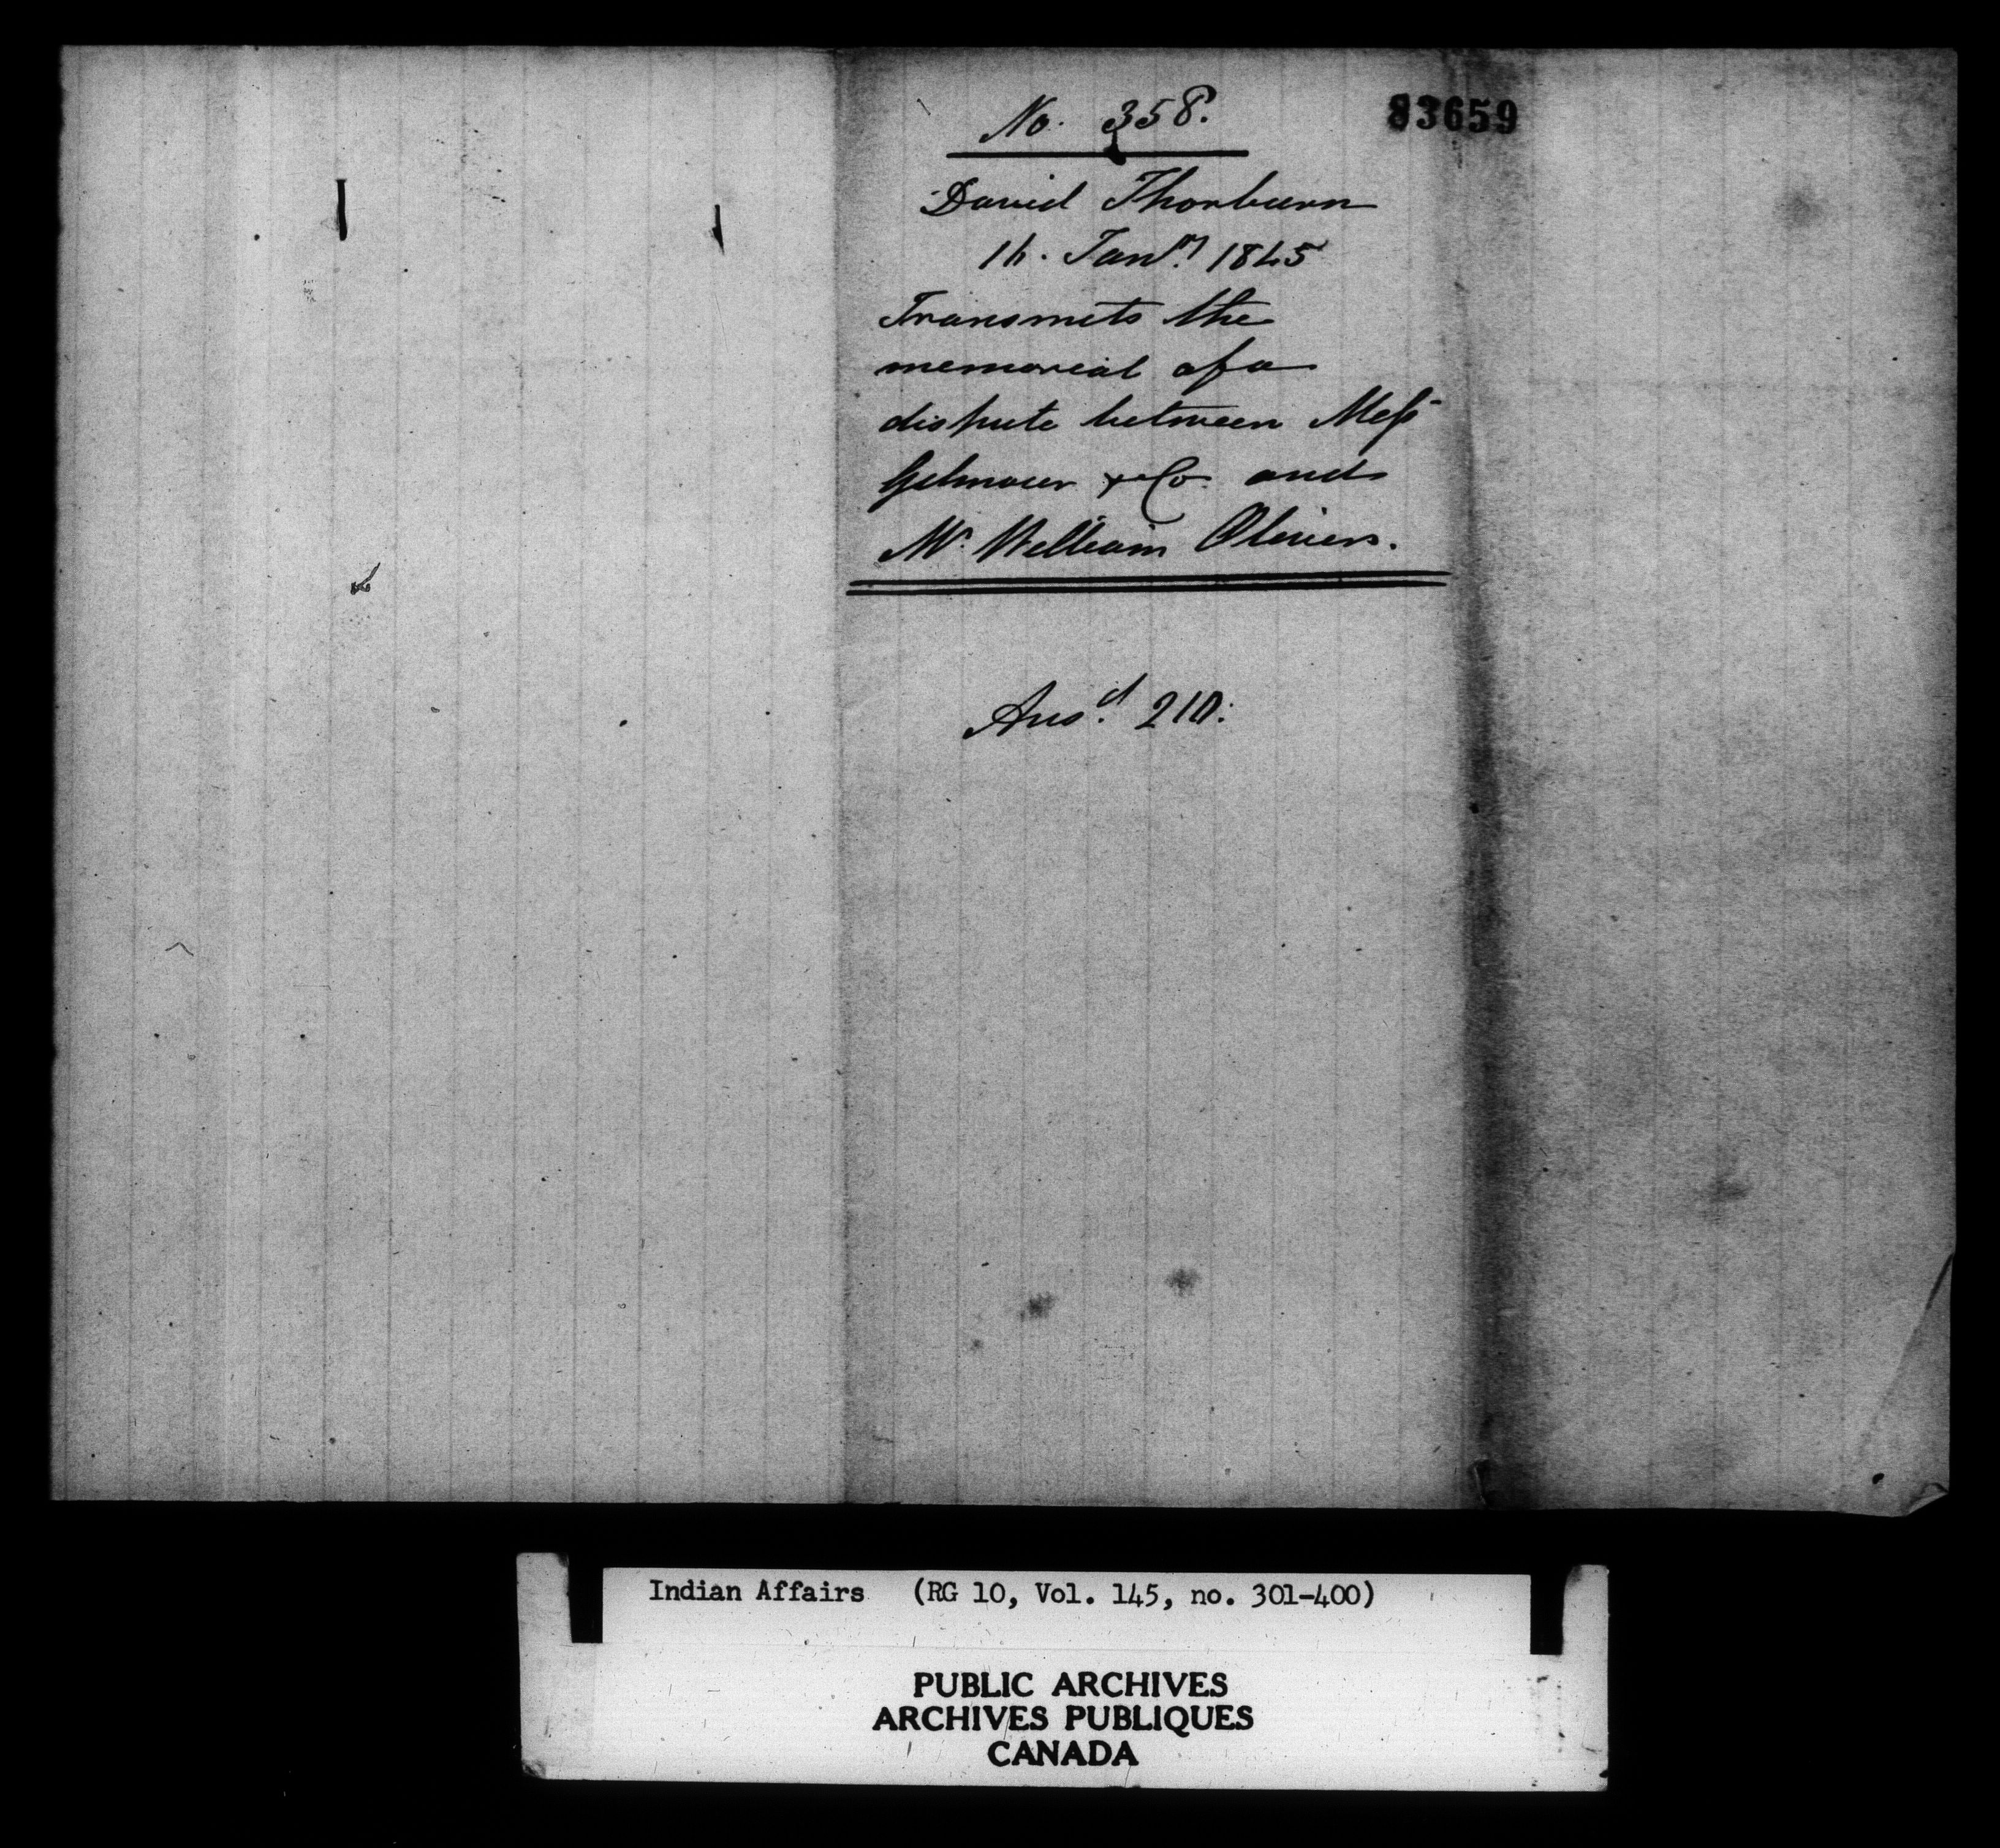 No. 358.
83659
David Thorburn
16. Jan'y 1845
Transmits the
memorial of a
dispute between Mess
Gilmour & Co. and
Mr. William Olivers.
Ans.d 210.
Indian Affairs (RG 10, Vol. 145, no. 301-400)
PUBLIC ARCHIVES
ARCHIVES PUBLIQUES
CANADA